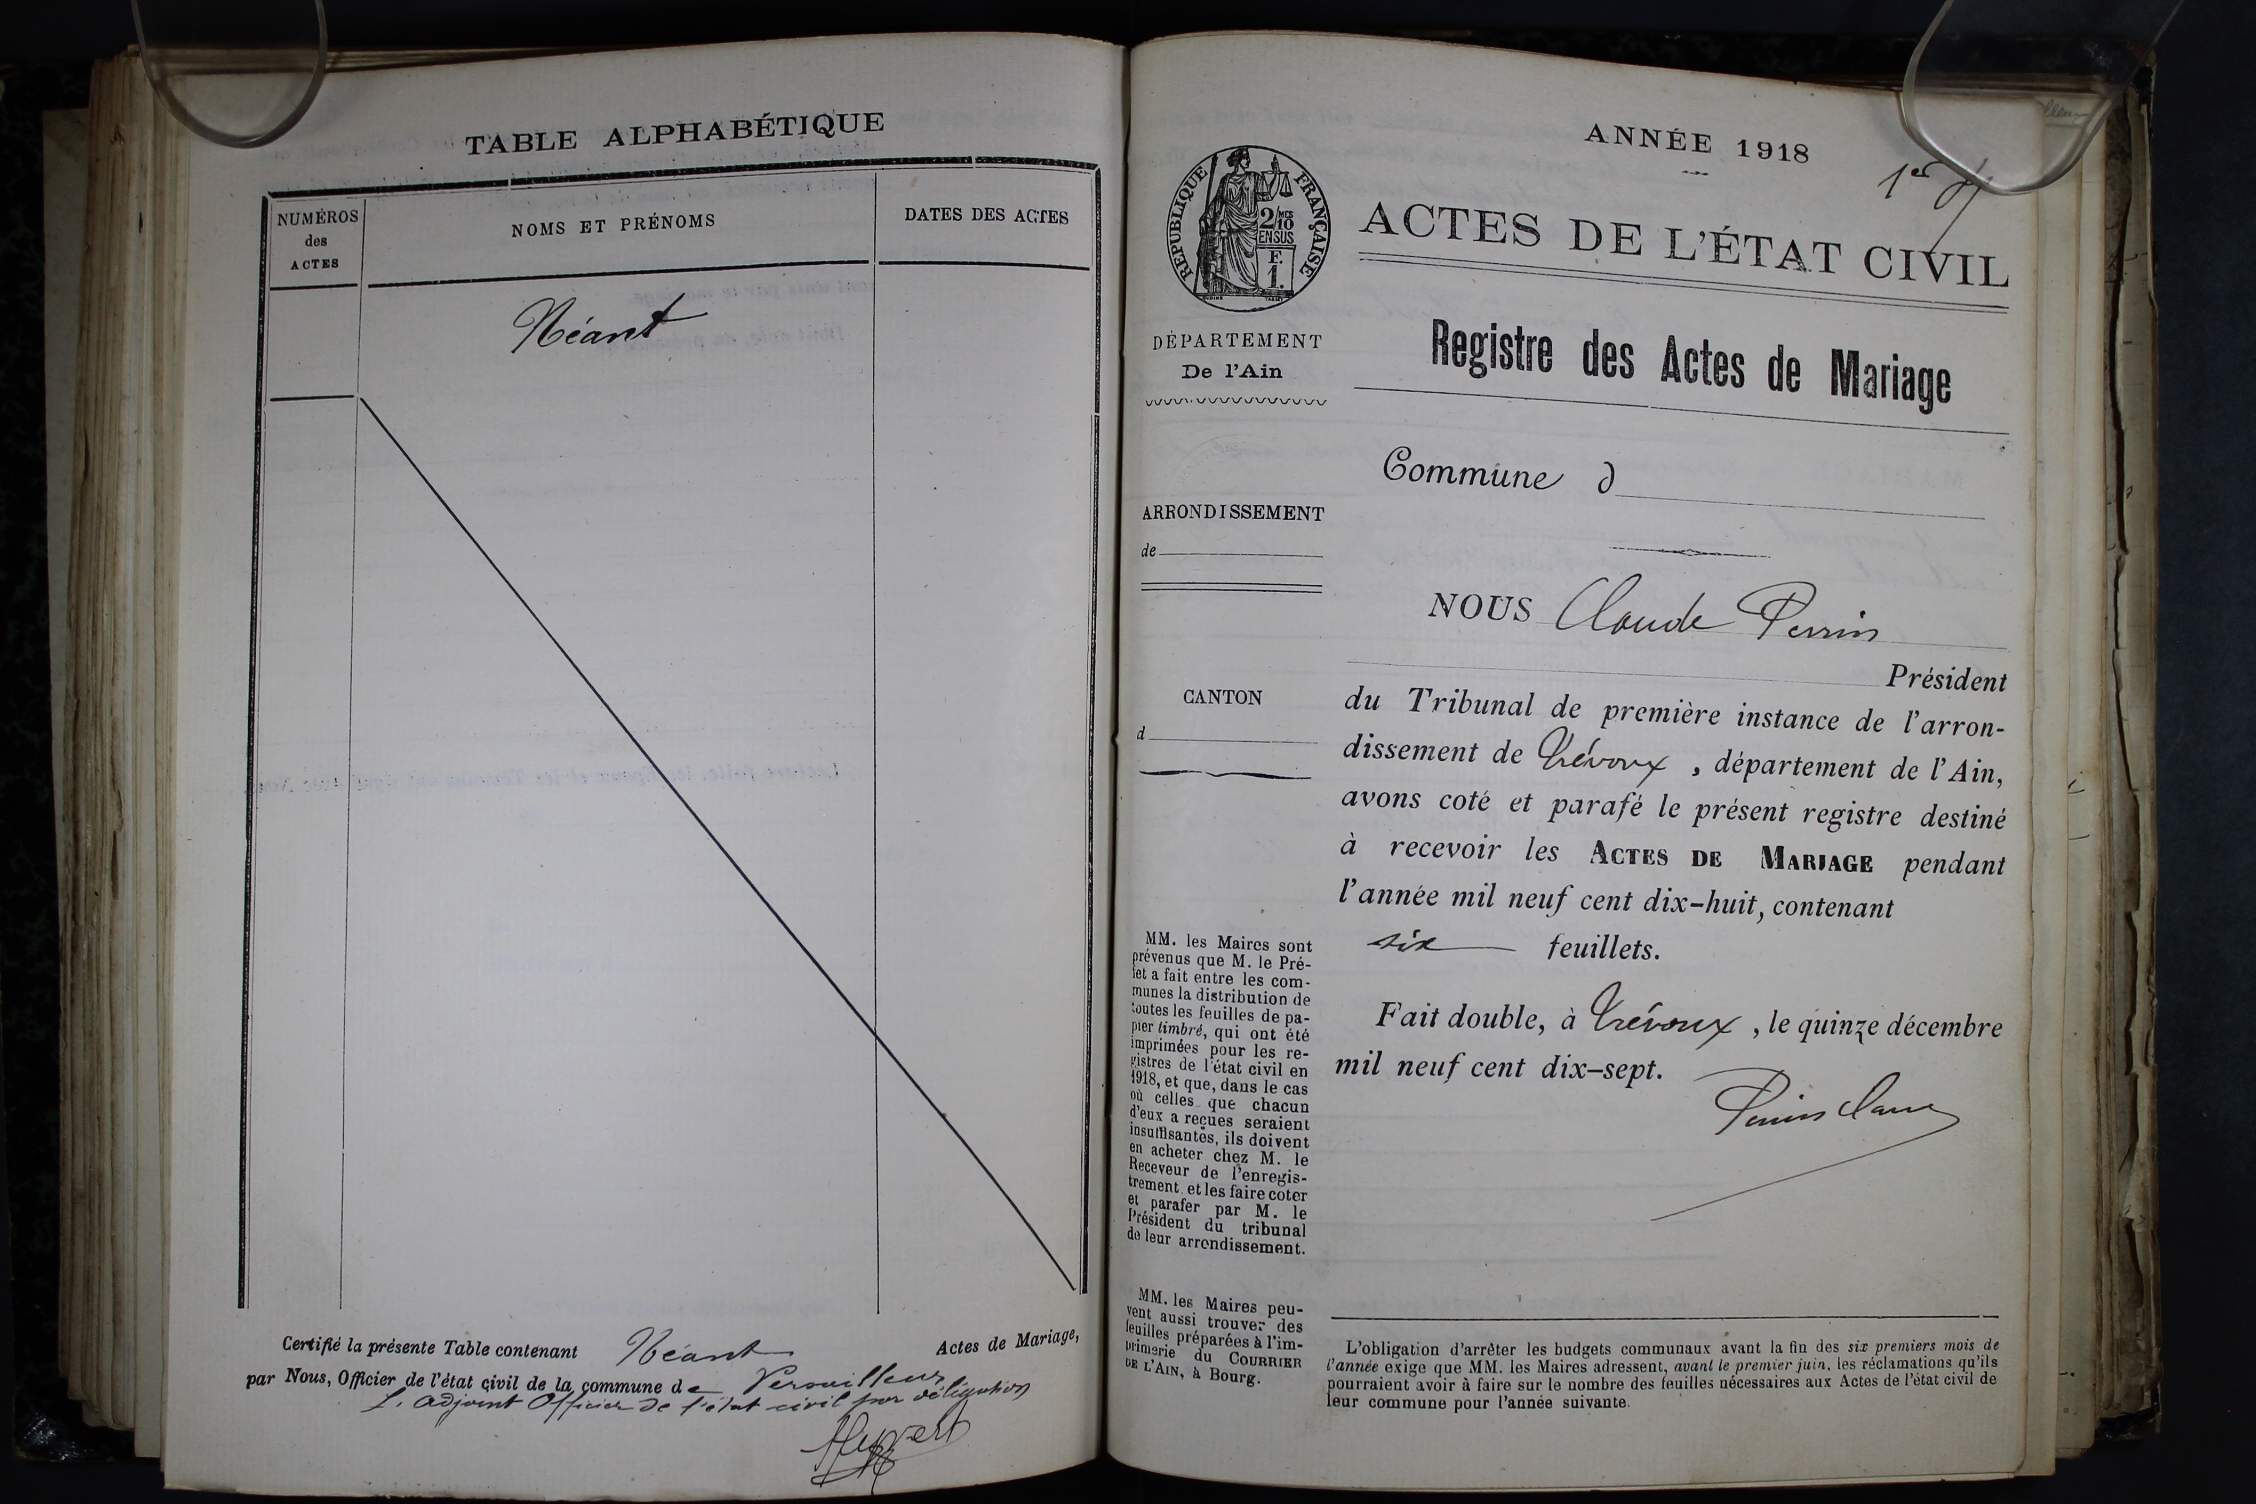 TABLE ALPHABÉTIQUE
NUMÉROS
des
ACTES
NOMS ET PRÉNOMS
DATES DES ACTES
Néant
Certifié la présente Table contenant Néant Actes de Mariage,
par Nous, Officier de l'état civil de la commune de
L. adjoint Officier de l'état civil par délégation
ANNÉE 1918
1er
RÉPUBLIQUE FRANÇAISE
2/10
MES
EN SUS
F.
1.
ACTES DE L'ÉTAT CIVIL
DÉPARTEMENT
De l'Ain
Registre des Actes de Mariage
Commune d
ARRONDISSEMENT
de
NOUS Claude Perrin
Président
CANTON
d
du Tribunal de première instance de l'arron-
dissement de Trévoux, département de l'Ain,
avons coté et parafé le présent registre destiné
à recevoir les ACTES DE MARIAGE pendant
l'année mil neuf cent dix-huit, contenant
six feuillets.
Fait double, à Trévoux, le quinze décembre
mil neuf cent dix-sept.
MM. les Maires sont
prévenus que M. le Pré-
fet a fait entre les com-
munes la distribution de
toutes les feuilles de pa-
pier timbré, qui ont été
imprimées pour les re-
gistres de l'état civil en
1918, et que, dans le cas
où celles que chacun
d'eux a reçues seraient
insuffisantes, ils doivent
en acheter chez M. le
Receveur de l'enregis-
trement et les faire coter
et parafer par M. le
Président du tribunal
de leur arrondissement.
MM. les Maires peu-
vent aussi trouver des
feuilles préparées à l'im-
primerie du COURRIER
DE L'AIN, à Bourg.
L'obligation d'arrêter les budgets communaux avant la fin des six premiers mois de
l'année exige que MM. les Maires adressent, avant le premier juin, les réclamations qu'ils
pourraient avoir à faire sur le nombre des feuilles nécessaires aux Actes de l'état civil de
leur commune pour l'année suivante.